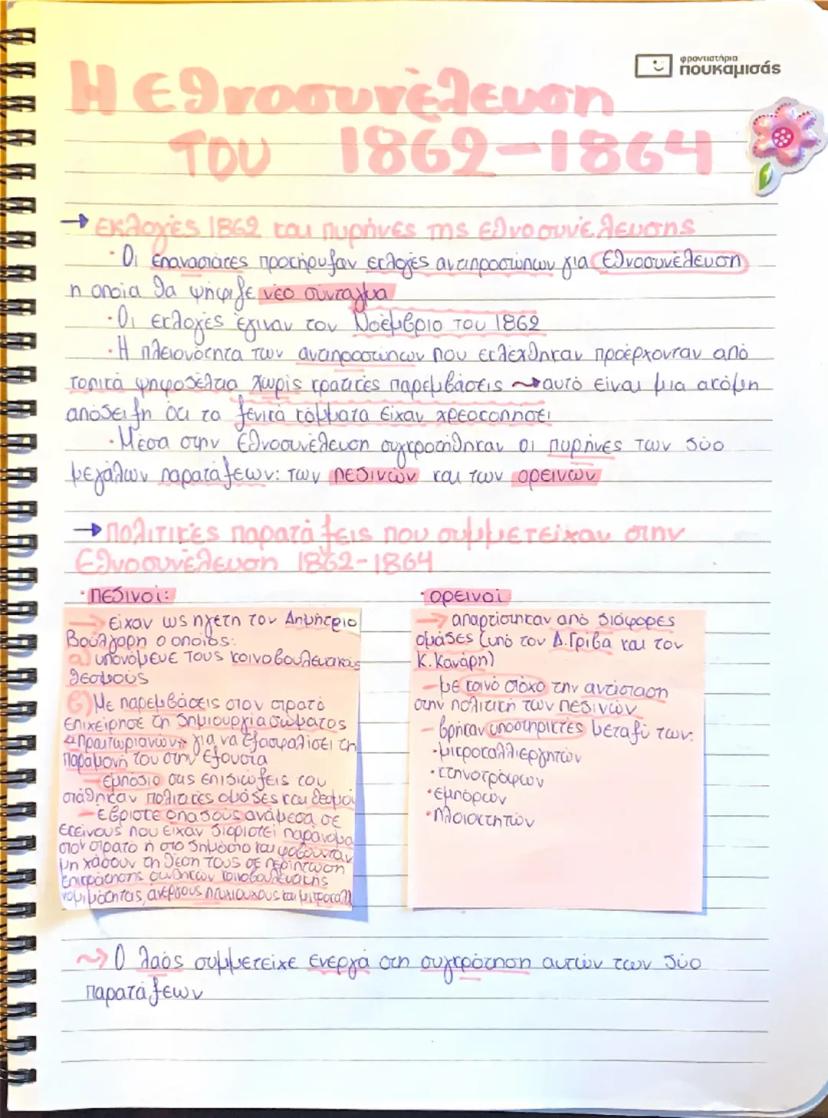 φροντιστήρια
πουκαμισάς
Η εθνοσυνέλευση
του 1862-1864
→ εκλογές 1862 και πυρήνες της εθνοσυνέλευσης
· Οι επαναστάτες προκήρυξαν εκλογές αντιπροσώπων για Εθνοσυνέλευση
η οποία θα ψήφιζε νέο σύνταγμα
· Οι εκλογές έγιναν τον Νοέμβριο του 1862
· Η πλειονότητα των αντιπροσώπων που εκλέχθηκαν προέρχονταν από
τοπικά ψηφοδέλτια χωρίς κρατικές παρεμβάσεις ⤳ αυτό είναι μια ακόμη
απόδειξη ότι τα ξενικά κόμματα είχαν χρεοκοπήσει
· Μέσα στην Εθνοσυνέλευση συγκροτήθηκαν οι πυρήνες των δύο
μεγάλων παρατάξεων: των πεδινών και των ορεινών
→ Πολιτικές παρατάξεις που συμμετείχαν στην
Εθνοσυνέλευση 1862-1864
· πεδινοί:
→ είχαν ως ηγέτη τον Δημήτριο
Βούλγαρη ο οποίος:
α) υπονόμευε τους κοινοβουλευτικούς
θεσμούς
β) Με παρεμβάσεις στον στρατό
επιχείρησε τη δημιουργία σώματος
«πραιτωριανών» για να εξασφαλίσει τη
παραμονή του στην εξουσία
- εμπόδιο στις επιδιώξεις του
στάθηκαν πολίτες, ομάδες και θεσμοί
- έβρισκε οπαδούς ανάμεσα σε
εκείνους που είχαν διοριστεί παράνομα
στον στρατό ή στο δημόσιο και φοβούνταν
μη χάσουν τη θέση τους σε περίπτωση
επικράτησης συνθηκών κοινοβουλευτικής
νομιμότητας, άνεργους πτυχιούχους και
· ορεινοί
→ απαρτίστηκαν από διάφορες
ομάδες (υπό τον Δ.Γρίβα και τον
Κ.Κανάρη)
- με κοινό στόχο την αντίσταση
στην πολιτική των πεδινών
- βρήκαν υποστηρικτές μεταξύ των:
· μικροκαλλιεργητών
· κτηνοτρόφων
· εμπόρων
· πλοιοκτητών
⤳ Ο λαός συμμετείχε ενεργά στη συγκρότηση αυτών των δύο
παρατάξεων